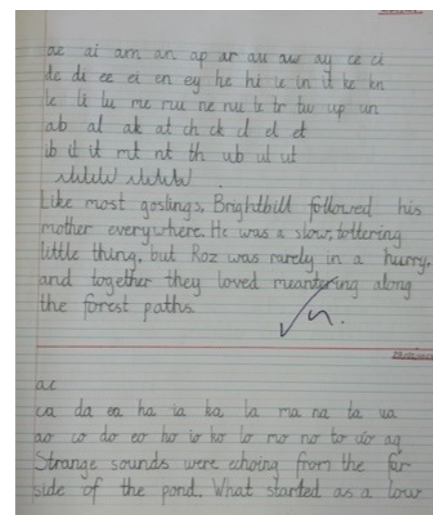 ae ai am an ap ar au aw ay ce ci
de di ee ei en ey he hi ie in it ke kn
le li lu me mu ne nu te tr tw up un
ab al ak at ch ck cl el et
ib il it mt nt th ub ul ut
Like most goslings, Brightbill followed his
mother everywhere. He was a slow, tottering
little thing, but Roz was rarely in a hurry,
and together they loved meantering along
the forest paths.
ac
ca da ea ha ia ka la ma na ta ua
ao co do eo ho io ko lo mo no to uo ag
Strange sounds were echoing from the far
side of the pond. What started as a low